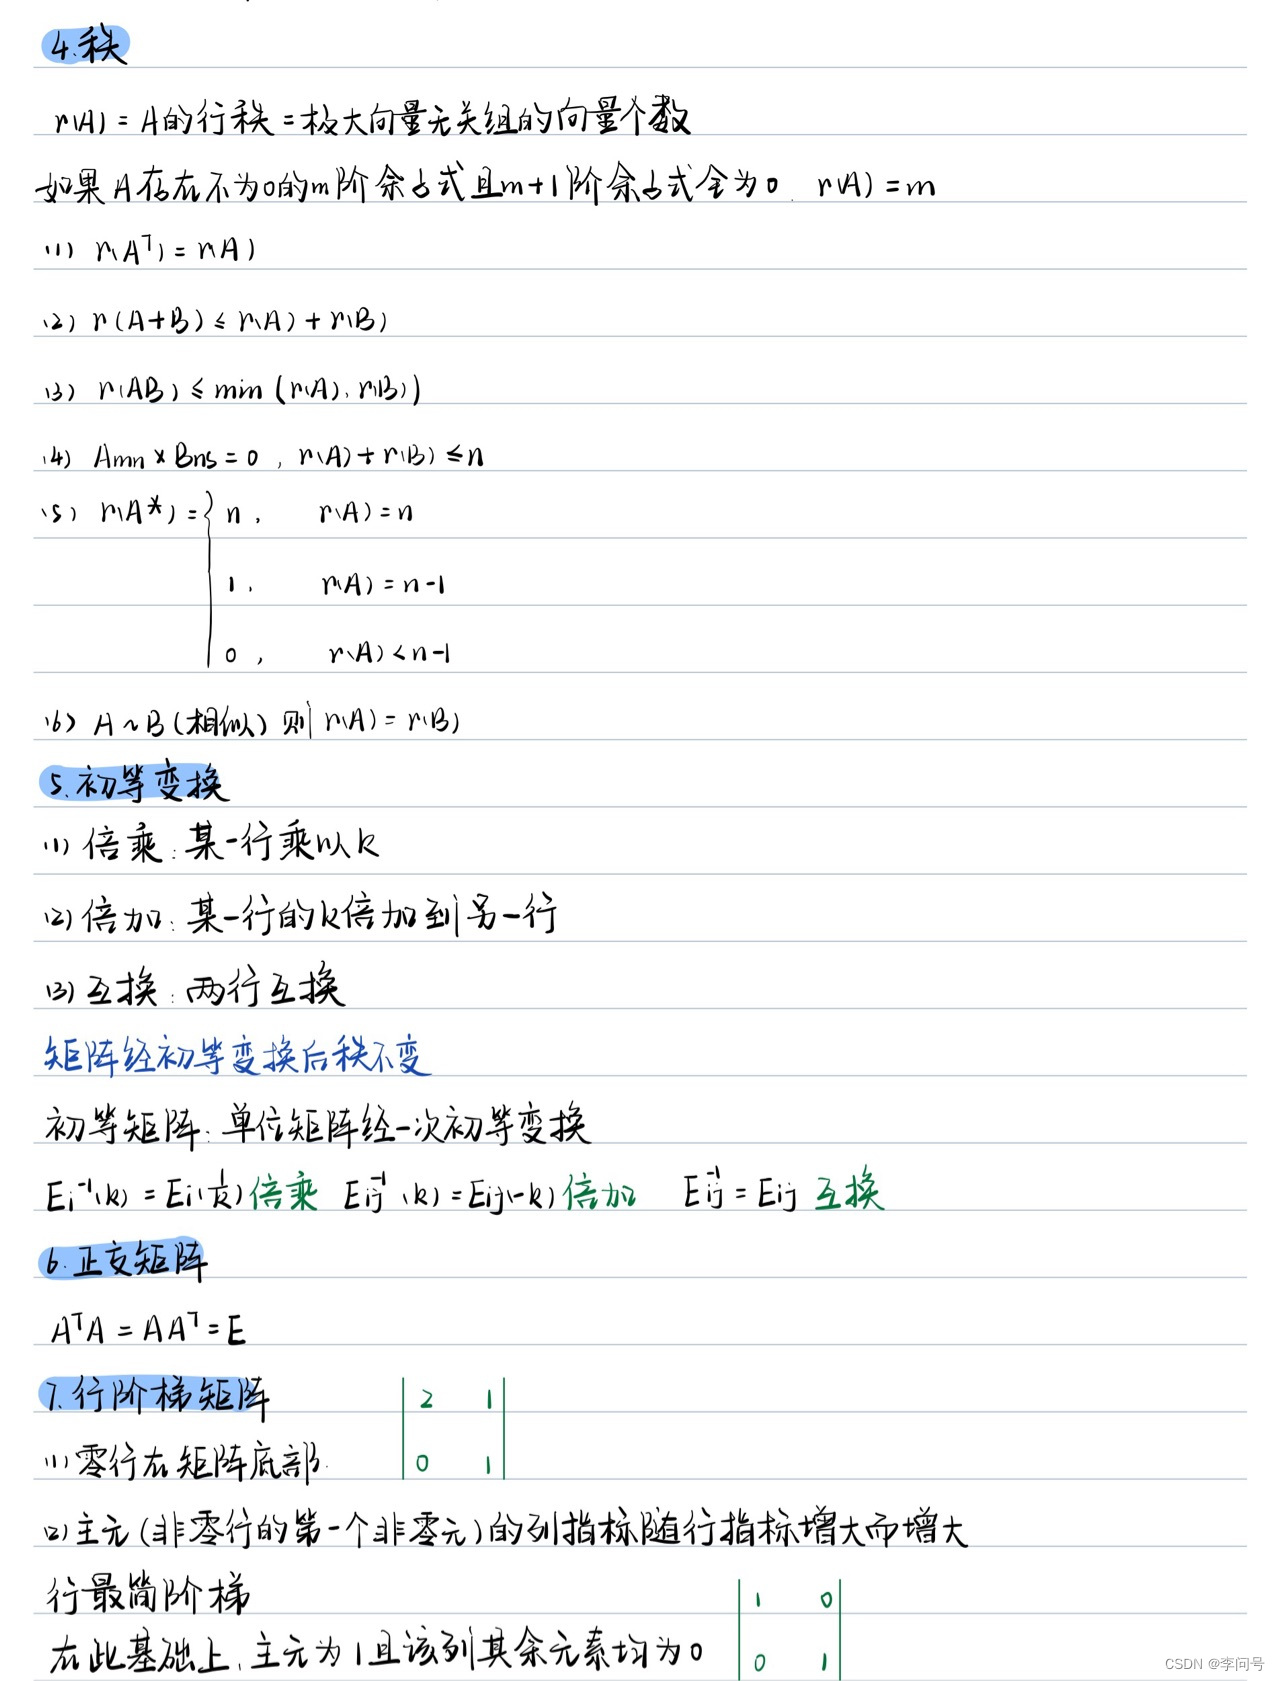 4.秩
r(A) = A的行秩 = 极大向量无关组的向量个数
如果A存在不为0的m阶余子式且m+1阶余子式全为0. r(A) = m
(1) r(Aᵀ) = r(A)
(2) r(A+B) ≤ r(A) + r(B)
(3) r(AB) ≤ min (r(A), r(B))
(4) Amn × Bns = 0 , r(A) + r(B) ≤ n
(5) r(A*) = { n , r(A) = n
1 , r(A) = n-1
0 , r(A) < n-1
(6) A ~ B (相似) 则 r(A) = r(B)
5.初等变换
(1) 倍乘: 某一行乘以k
(2) 倍加: 某一行的k倍加到另一行
(3) 互换: 两行互换
矩阵经初等变换后秩不变
初等矩阵: 单位矩阵经一次初等变换
Ei⁻¹(k) = Ei(1/k) 倍乘 Eij⁻¹(k) = Eij(-k) 倍加 Eij⁻¹ = Eij 互换
6.正交矩阵
AᵀA = AAᵀ = E
7.行阶梯矩阵 | 2 1 |
(1) 零行在矩阵底部. | 0 1 |
(2) 主元(非零行的第一个非零元)的列指标随行指标增大而增大
行最简阶梯 | 1 0 |
在此基础上, 主元为1且该列其余元素均为0 | 0 1 |
CSDN @李问号